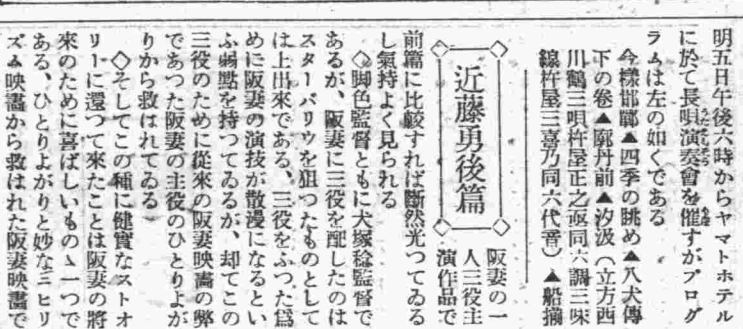 明五日午後六時からヤマトホテル
に於て長唄演奏會を催すがプログ
ラムは左の如くである
今樣邯鄲▲四季の眺め▲八犬傳
下の巻▲廓丹前▲汐汲（立方西
川鶴三唄杵屋正之亟同六調三味
線杵屋三喜乃同六代音）▲船揃
近藤勇後篇
阪妻の一
人三役主
演作品で
前篇に比較すれば斷然光つてゐる
し氣持よく見られる
◇脚色監督ともに犬塚稔監督で
あるが、阪妻に三役を配したのは
スターバリウを狙つたものとして
は上出來である、三役をふつた爲
めに阪妻の演技が散漫になるとい
ふ弱點を持つてゐるが、却てこの
三役のために從來の阪妻映畫の弊
であつた阪妻の主役のひとりよが
りから救はれてゐる
◇そしてこの種に健實なストオ
リーに還つて來たことは阪妻の將
來のために喜ばしいものゝ一つで
ある、ひとりよがりと妙なニヒリ
ズム映畫から救はれた阪妻映畫で